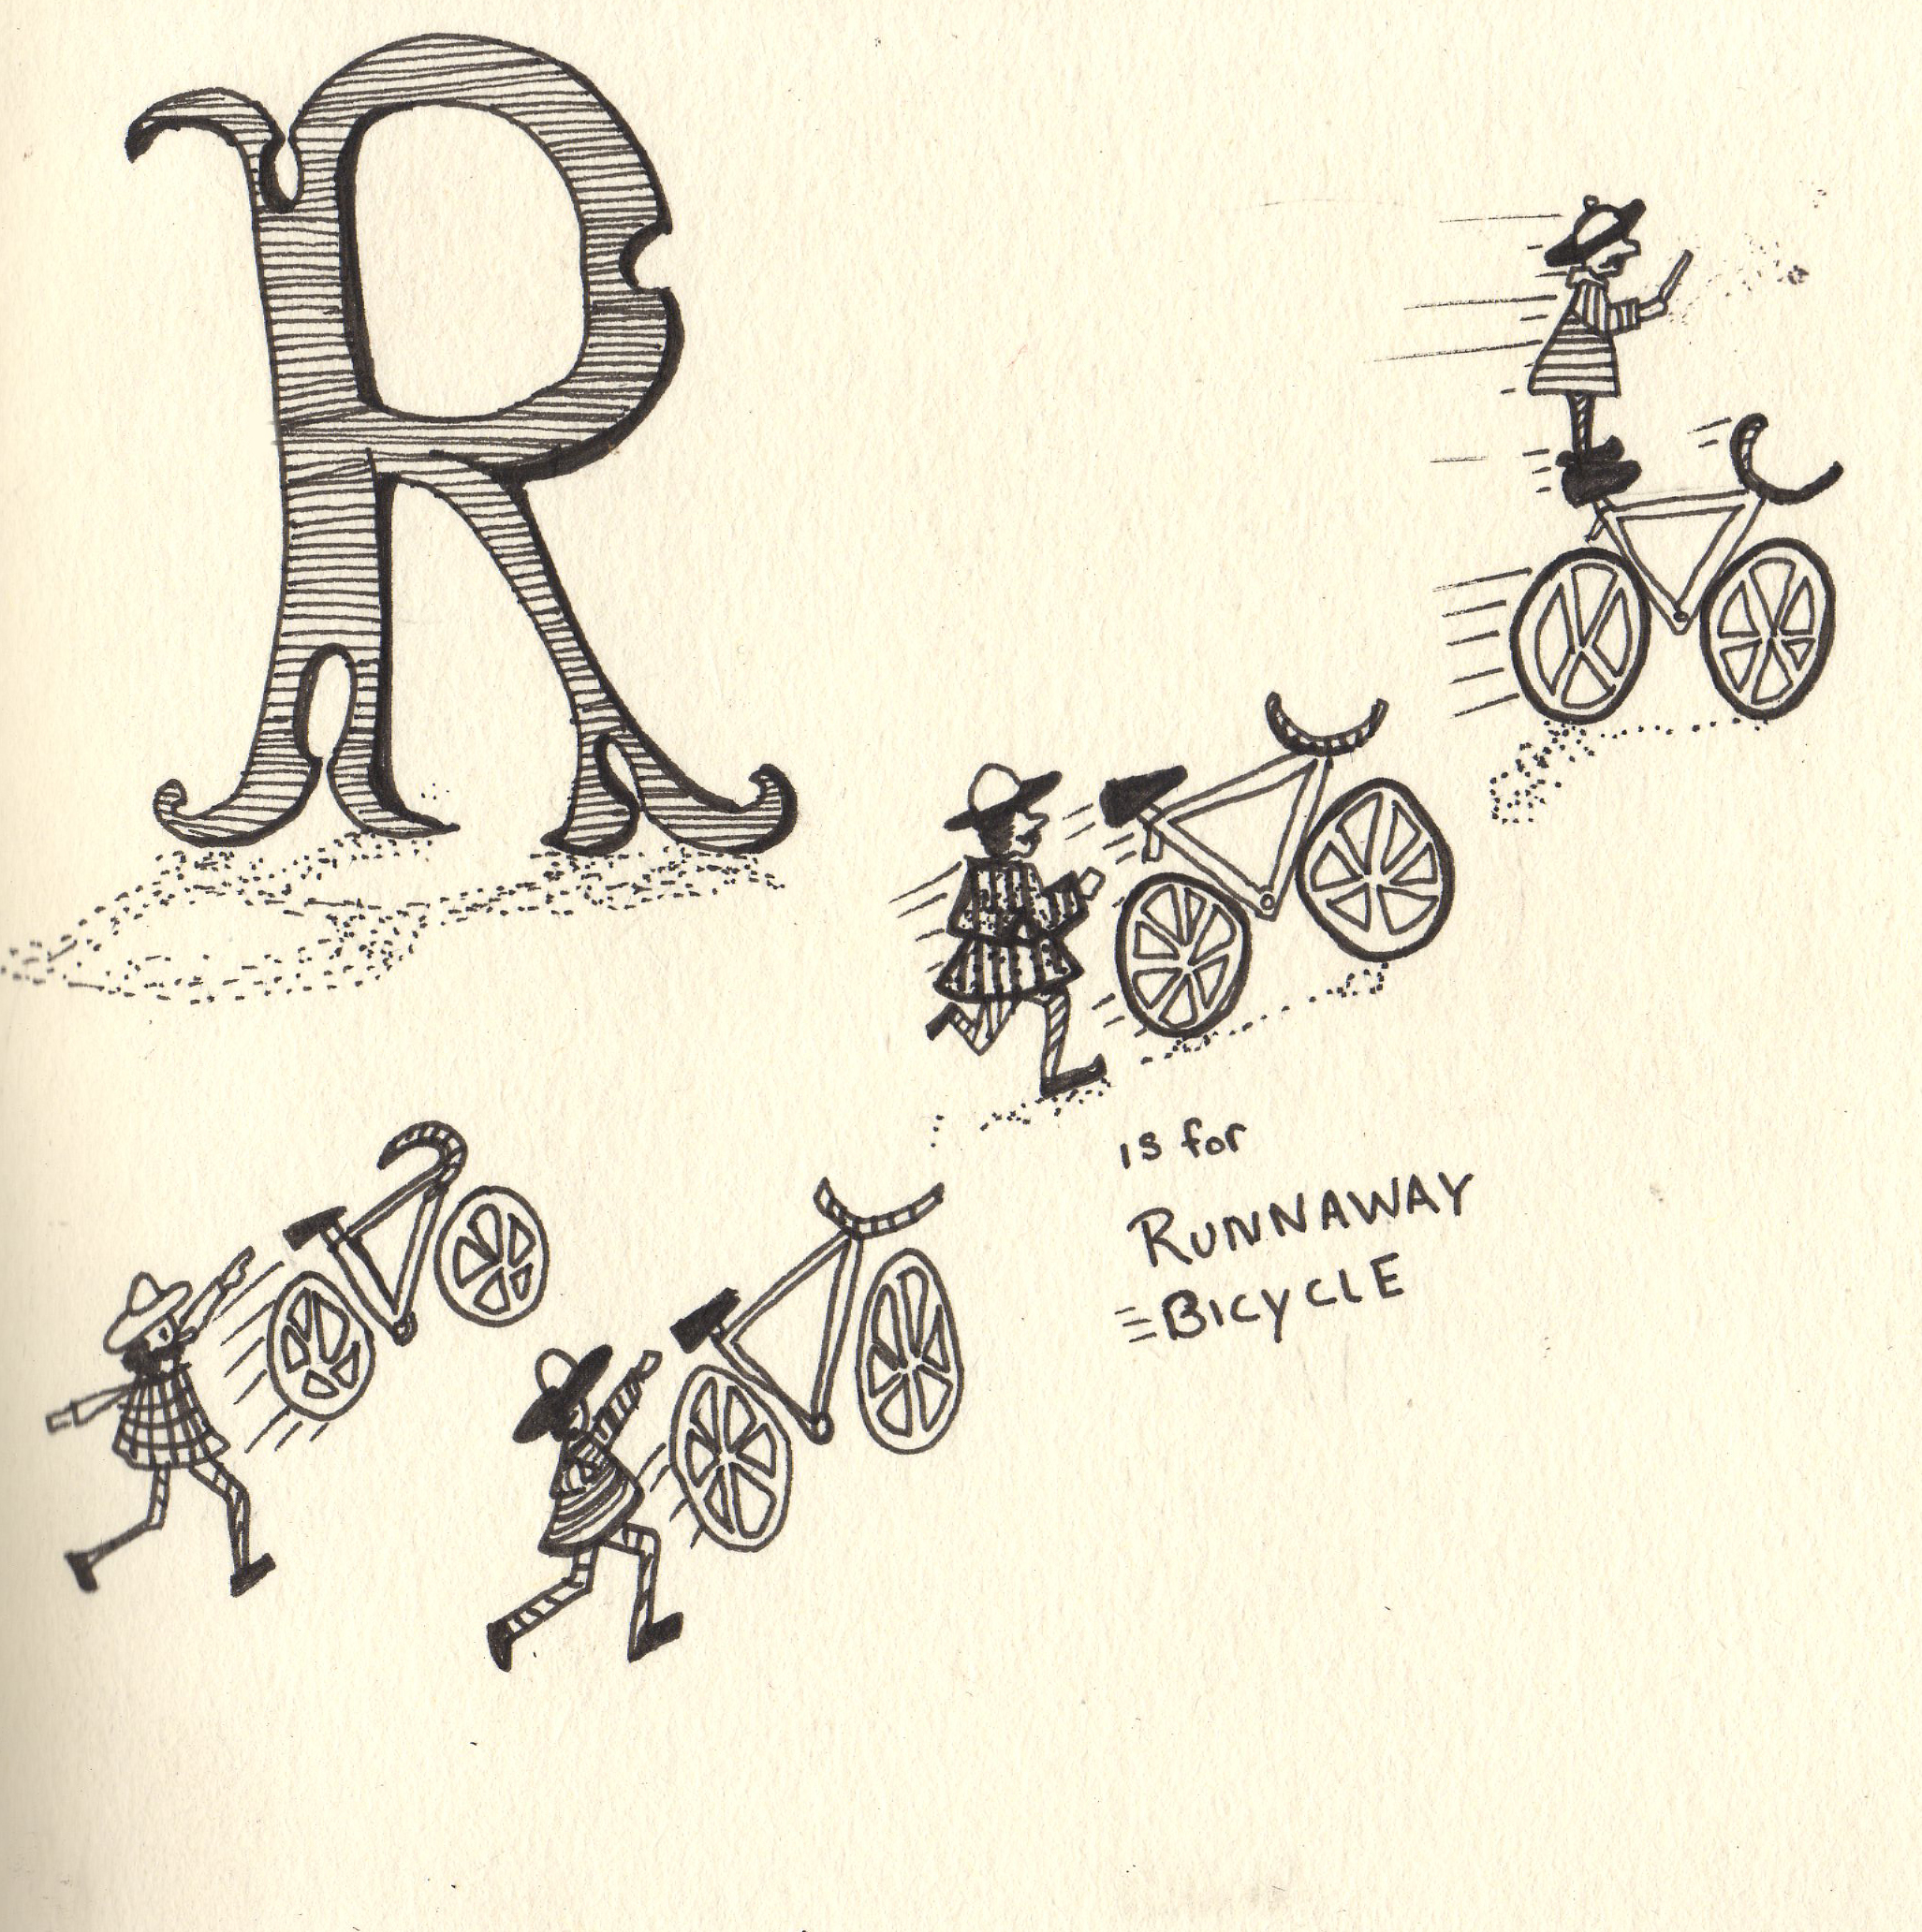 R
is for
RUNNAWAY
BICYCLE